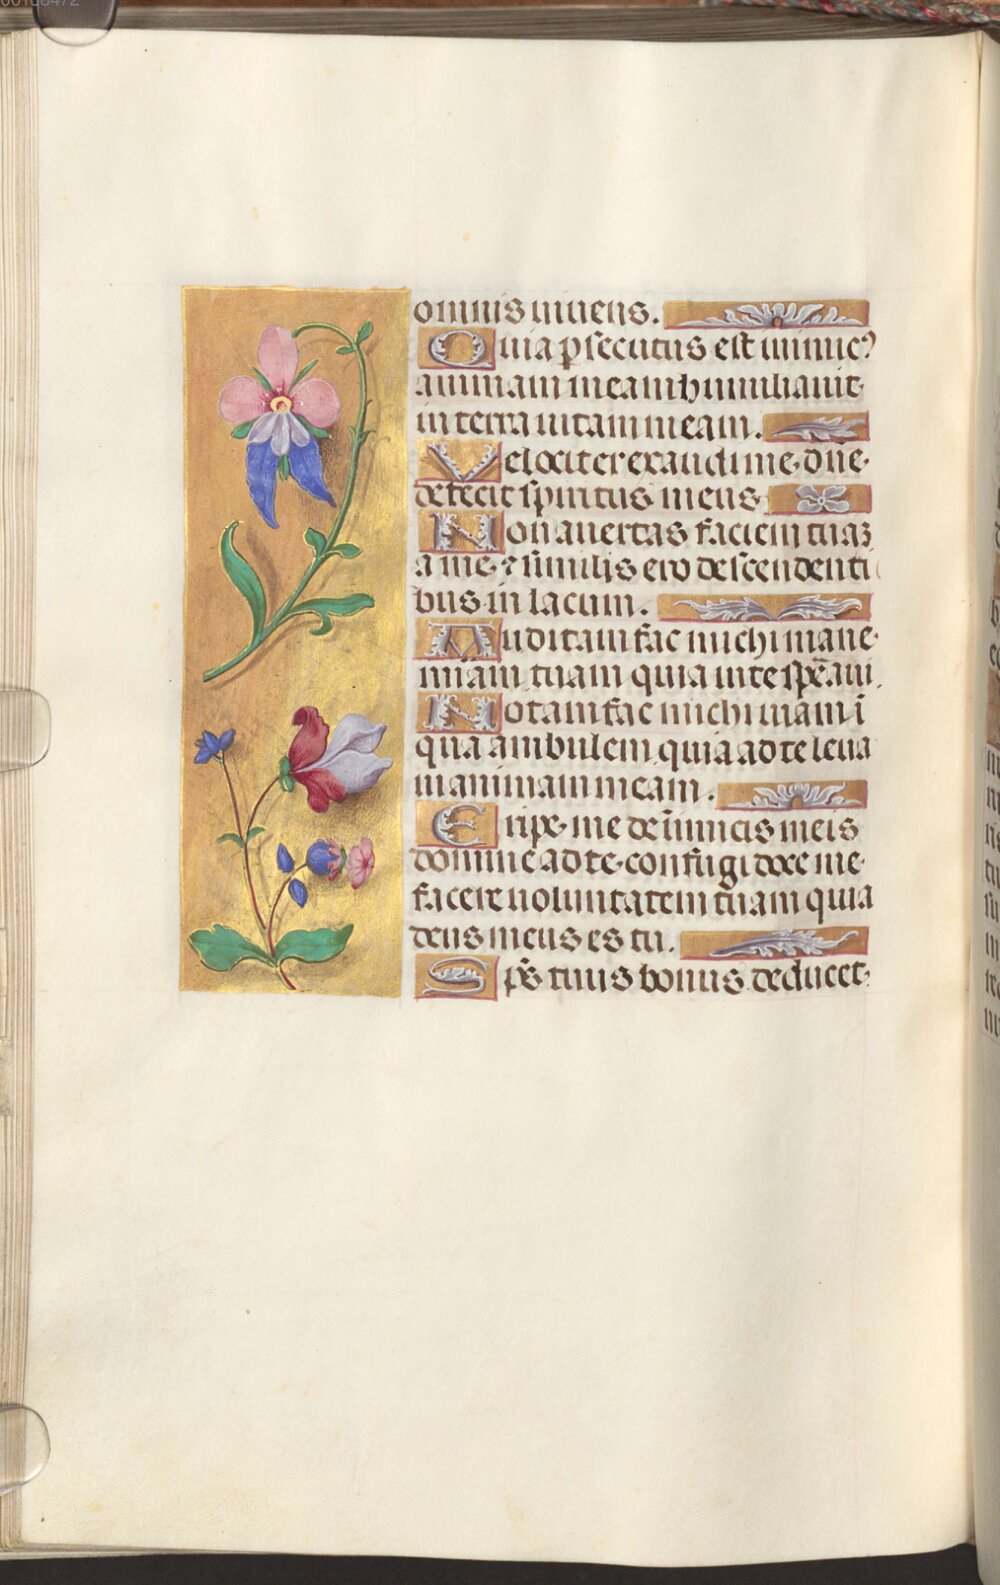 omnis viuens.
Quia p̱secutus est inimic9
animam meam humiliauit
in terra uitam meam.
Velociter exaudi me dn̄e
defecit spiritus meus
Non auertas faciem tuaꝫ
a me ⁊ similis ero descendenti
bus in lacum.
Auditam fac michi mane
mīam tuam quia in te speraui
Notam fac michi uiam ī
qua ambulem quia ad te leua
ui animam meam.
Eripe me de inimicis meis
domine ad te confugi doce me
facere uoluntatem tuam quia
deus meus es tu.
Sp̄s tuus bonus deducet